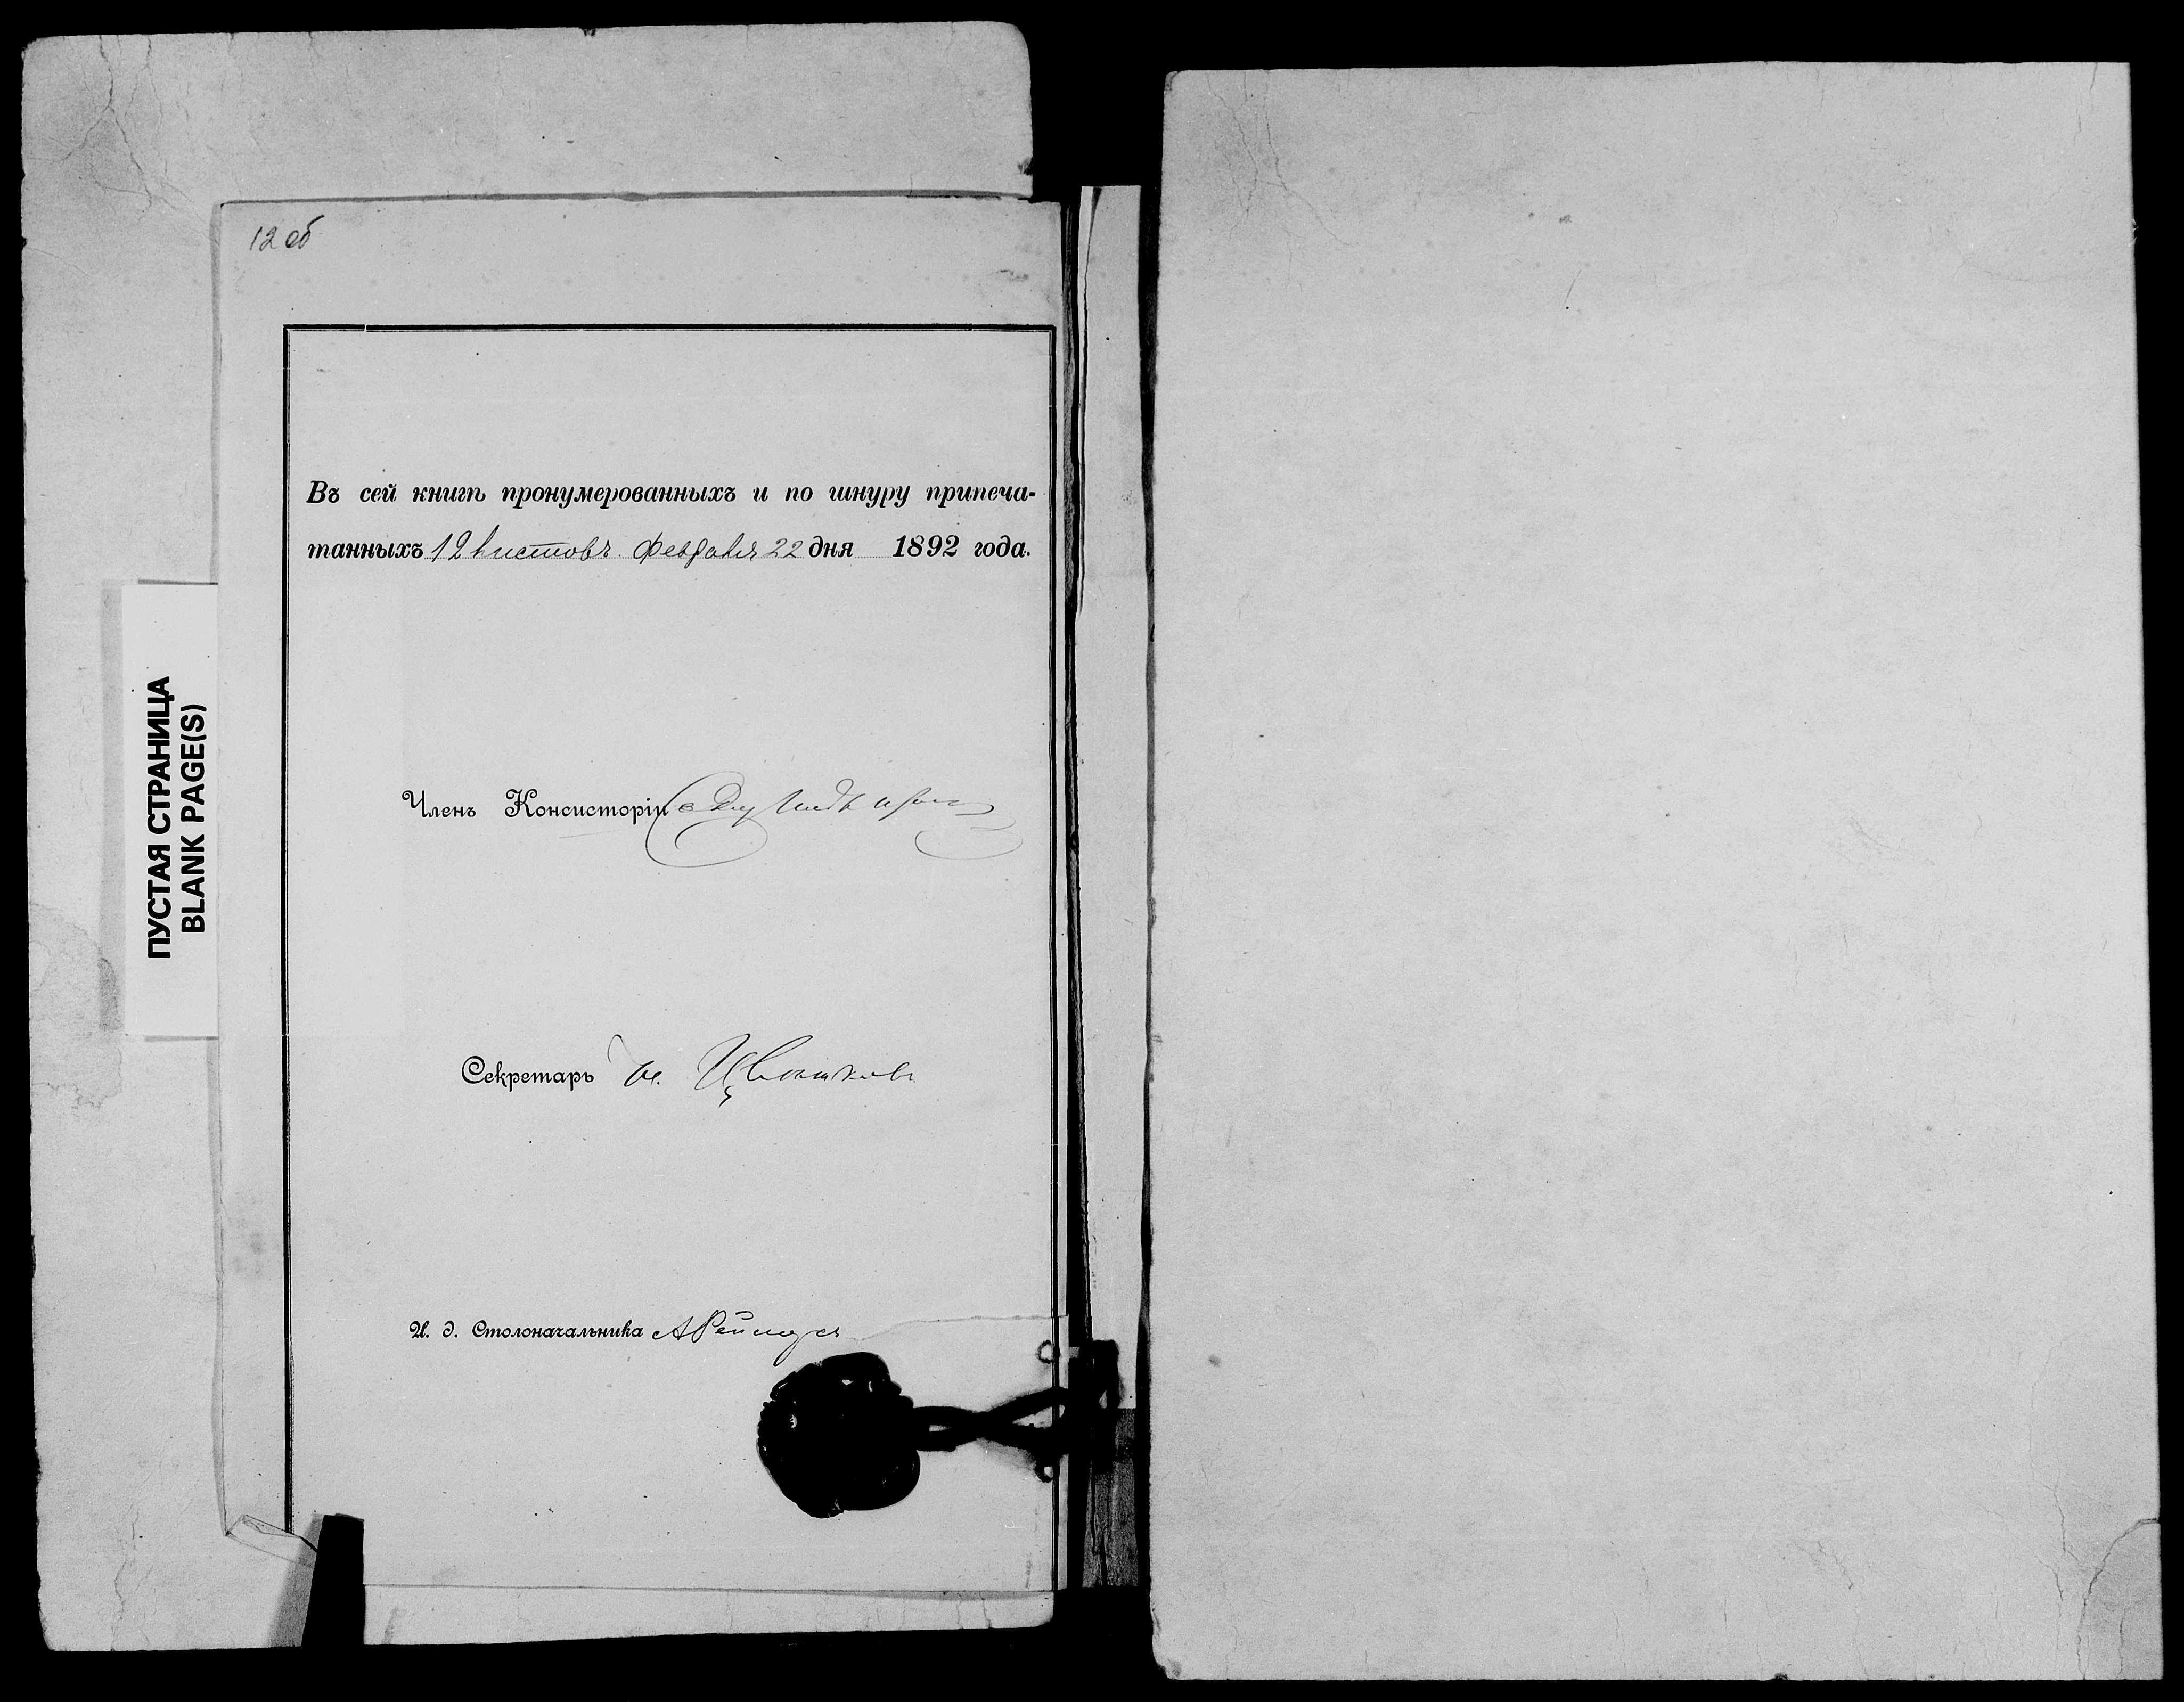 12 об
Въ сей книгѣ пронумерованныхъ и по шнуру припеча-
танныхъ 12 листовъ. Февраля 22 дня 1892 года.
Членъ Консисторіи
Секретарь Н. Цвѣтковъ
И. д. Столоначальника А
ПУСТАЯ СТРАНИЦА
BLANK PAGE(S)